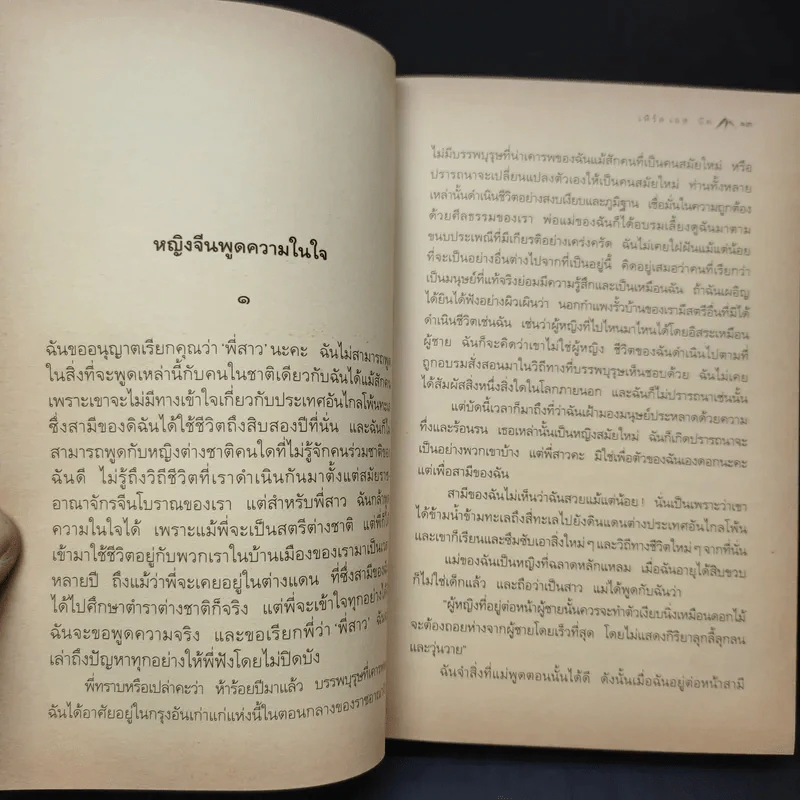 หญิงจีนพูดความในใจ
๑
ฉันขออนุญาตเรียกคุณว่า ‘พี่สาว’ นะคะ ฉันไม่สามารถพูด
ในสิ่งที่จะพูดเหล่านี้กับคนในชาติเดียวกับฉันได้แม้สักคน
เพราะเขาจะไม่มีทางเข้าใจเกี่ยวกับประเทศอันไกลโพ้นทะเล
ซึ่งสามีของดิฉันได้ใช้ชีวิตถึงสิบสองปีที่นั่น และฉันก็ไม่
สามารถพูดกับหญิงต่างชาติคนใดที่ไม่รู้จักคนร่วมชาติของ
ฉันดี ไม่รู้ถึงวิถีชีวิตที่เราดำเนินกันมาตั้งแต่สมัยราช
อาณาจักรจีนโบราณของเรา แต่สำหรับพี่สาว ฉันกล้าพูด
ความในใจได้ เพราะแม้พี่จะเป็นสตรีต่างชาติ แต่พี่ก็ได้
เข้ามาใช้ชีวิตอยู่กับพวกเราในบ้านเมืองของเรามาเป็นเวลา
หลายปี ถึงแม้ว่าพี่จะเคยอยู่ในต่างแดน ที่ซึ่งสามีของฉัน
ได้ไปศึกษาตำราต่างชาติก็จริง แต่พี่จะเข้าใจทุกอย่างได้
ฉันจะขอพูดความจริง และขอเรียกพี่ว่า ‘พี่สาว’ ฉันจะ
เล่าถึงปัญหาทุกอย่างให้พี่ฟังโดยไม่ปิดบัง
พี่ทราบหรือเปล่าคะว่า ห้าร้อยปีมาแล้ว บรรพบุรุษที่เคารพ
ฉันได้อาศัยอยู่ในกรุงอันเก่าแก่แห่งนี้ในตอนกลางของราชอาณา
๑๓
ไม่มีบรรพบุรุษที่น่าเคารพของฉันแม้สักคนที่เป็นคนสมัยใหม่ หรือ
ปรารถนาจะเปลี่ยนแปลงตัวเองให้เป็นคนสมัยใหม่ ท่านทั้งหลาย
เหล่านั้นดำเนินชีวิตอย่างสงบเงียบและภูมิฐาน เชื่อมั่นในความถูกต้อง
ด้วยศีลธรรมของเรา พ่อแม่ของฉันก็ได้อบรมเลี้ยงดูฉันมาตาม
ขนบประเพณีที่มีเกียรติอย่างเคร่งครัด ฉันไม่เคยใฝ่ฝันแม้แต่น้อย
ที่จะเป็นอย่างอื่นต่างไปจากที่เป็นอยู่นี้ คิดอยู่เสมอว่าคนที่เรียกว่า
เป็นมนุษย์ที่แท้จริงย่อมมีความรู้สึกและเป็นเหมือนฉัน ถ้าฉันเผอิญ
ได้ยินได้ฟังอย่างผิวเผินว่า นอกกำแพงรั้วบ้านของเรามีสตรีอื่นที่มิได้
ดำเนินชีวิตเช่นฉัน เช่นว่าผู้หญิงที่ไปไหนมาไหนได้โดยอิสระเหมือน
ผู้ชาย ฉันก็จะคิดว่าเขาไม่ใช่ผู้หญิง ชีวิตของฉันดำเนินไปตามที่
ถูกอบรมสั่งสอนมาในวิถีทางที่บรรพบุรุษเห็นชอบด้วย ฉันไม่เคย
ได้สัมผัสสิ่งหนึ่งสิ่งใดในโลกภายนอก และฉันก็ไม่ปรารถนาเช่นนั้น
แต่บัดนี้เวลาก็มาถึงที่ว่าฉันเฝ้ามองมนุษย์ประหลาดด้วยความ
ทึ่งและร้อนรน เธอเหล่านั้นเป็นหญิงสมัยใหม่ ฉันก็เกิดปรารถนาจะ
เป็นอย่างพวกเขาบ้าง แต่พี่สาวคะ มิใช่เพื่อตัวของฉันเองดอกนะคะ
แต่เพื่อสามีของฉัน
สามีของฉันไม่เห็นว่าฉันสวยแม้แต่น้อย! นั่นเป็นเพราะว่าเขา
ได้ข้ามน้ำข้ามทะเลถึงสี่ทะเลไปยังดินแดนต่างประเทศอันไกลโพ้น
และเขาก็เรียนและซึมซับเอาสิ่งใหม่ๆ และวิถีทางชีวิตใหม่ๆ จากที่นั่น
แม่ของฉันเป็นหญิงที่ฉลาดหลักแหลม เมื่อฉันอายุได้สิบขวบ
ก็ไม่ใช่เด็กแล้ว และถือว่าเป็นสาว แม่ได้พูดกับฉันว่า
“ผู้หญิงที่อยู่ต่อหน้าผู้ชายนั้นควรจะทำตัวเงียบนิ่งเหมือนดอกไม้
จะต้องถอยห่างจากผู้ชายโดยเร็วที่สุด โดยไม่แสดงกิริยาลุกลี้ลุกลน
และวุ่นวาย”
ฉันจำสิ่งที่แม่พูดตอนนั้นได้ดี ดังนั้นเมื่อฉันอยู่ต่อหน้าสามี